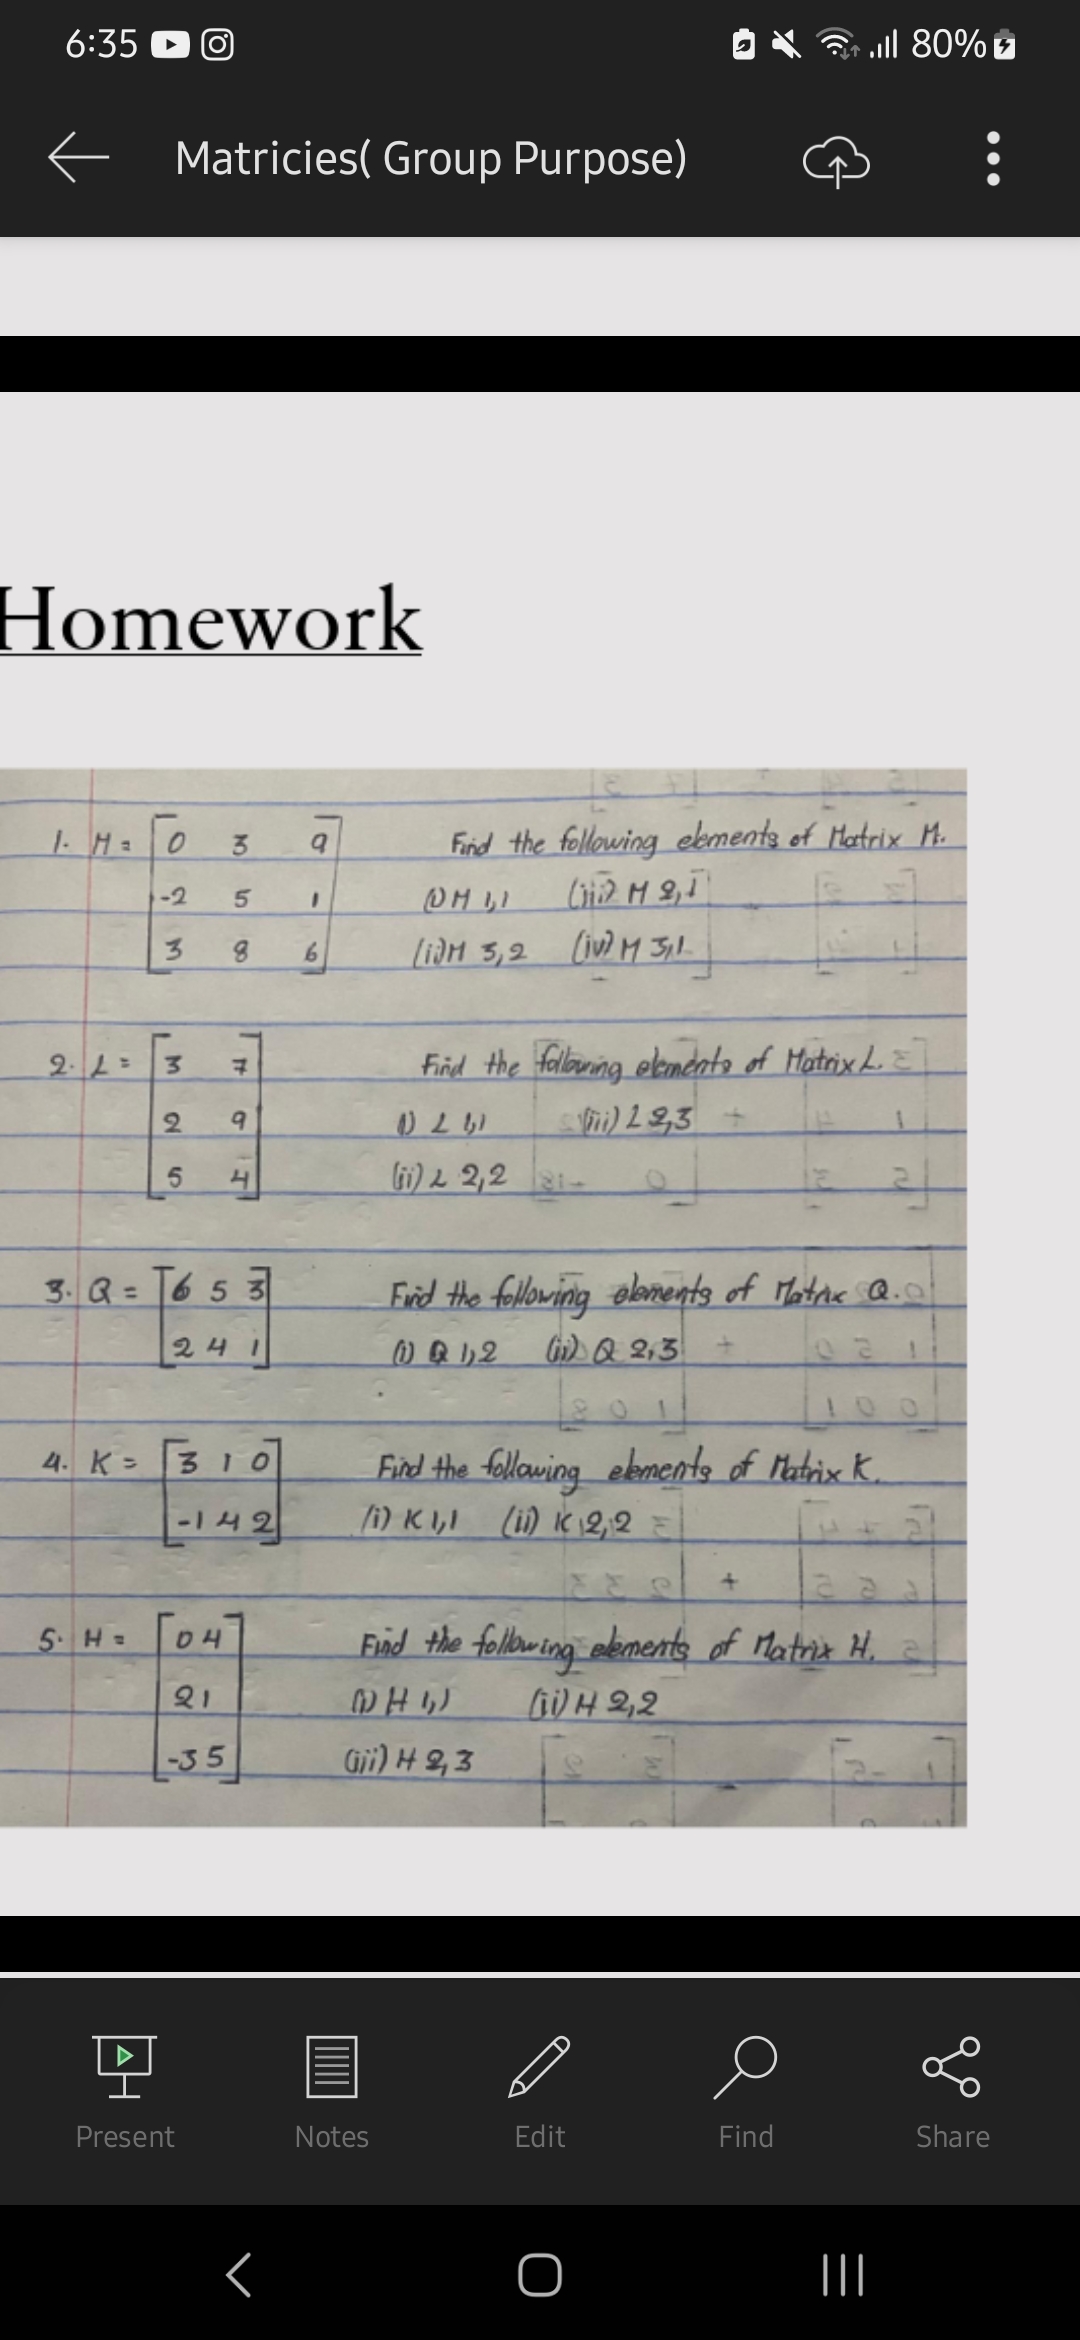 6:35 80%
Matricies( Group Purpose)
Homework
1. M = [0 3 9] Find the following elements of Matrix M.
[-2 5 1] (i) M 1,1 (iii) M 2,1
[3 8 6] (ii) M 3,2 (iv) M 3,1
2. L = [3 7] Find the following elements of Matrix L.
[2 9] (i) L 1,1 (iii) L 2,3
[5 4] (ii) L 2,2
3. Q = [6 5 3] Find the following elements of Matrix Q.
[2 4 1] (i) Q 1,2 (ii) Q 2,3
4. K = [3 1 0] Find the following elements of Matrix K.
[-1 4 2] (i) K 1,1 (ii) K 2,2
5. H = [0 4] Find the following elements of Matrix H.
[2 1] (i) H 1,1 (ii) H 2,2
[-3 5] (iii) H 2,3
Present Notes Edit Find Share